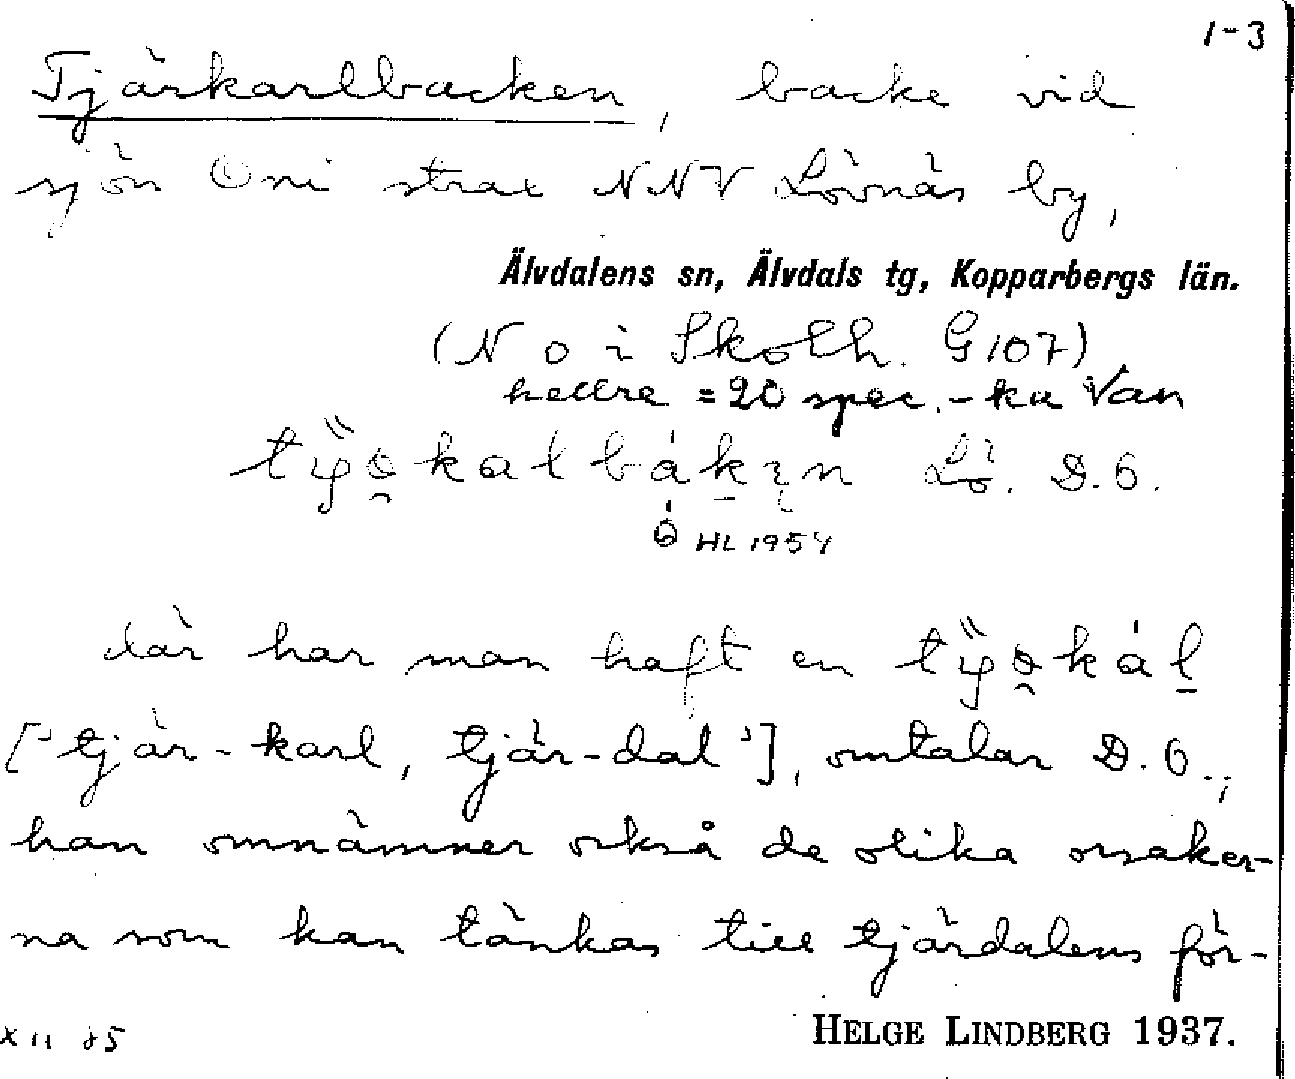 1-3
Tjärkarlbacken, backe vid
sjön Oni strax NNV Lövnäs by,
Älvdalens sn, Älvdals tg, Kopparbergs län.
(N o i Skolh. G 107)
hellre = 20 spec. - ka Van
Lö. D.6.
HL 1954
där har man haft en
['tjär-karl, tjär-dal'], omtalar D.6.,
han omnämner också de olika orsaker-
na som kan tänkas till tjärdalens för-
HELGE LINDBERG 1937.
X 11 85